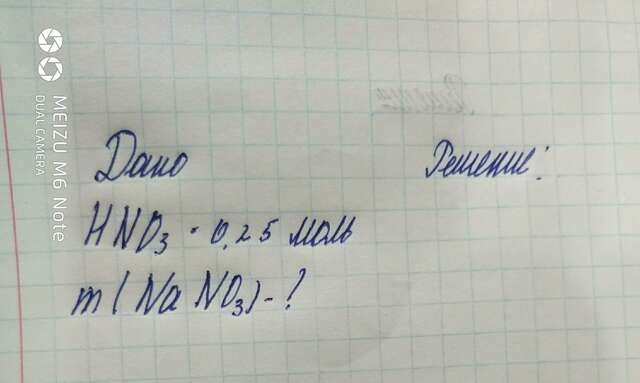 Дано
Решение:
HNO₃ - 0,25 моль
m(NaNO₃)-?
MEIZU M6 Note
DUAL CAMERA